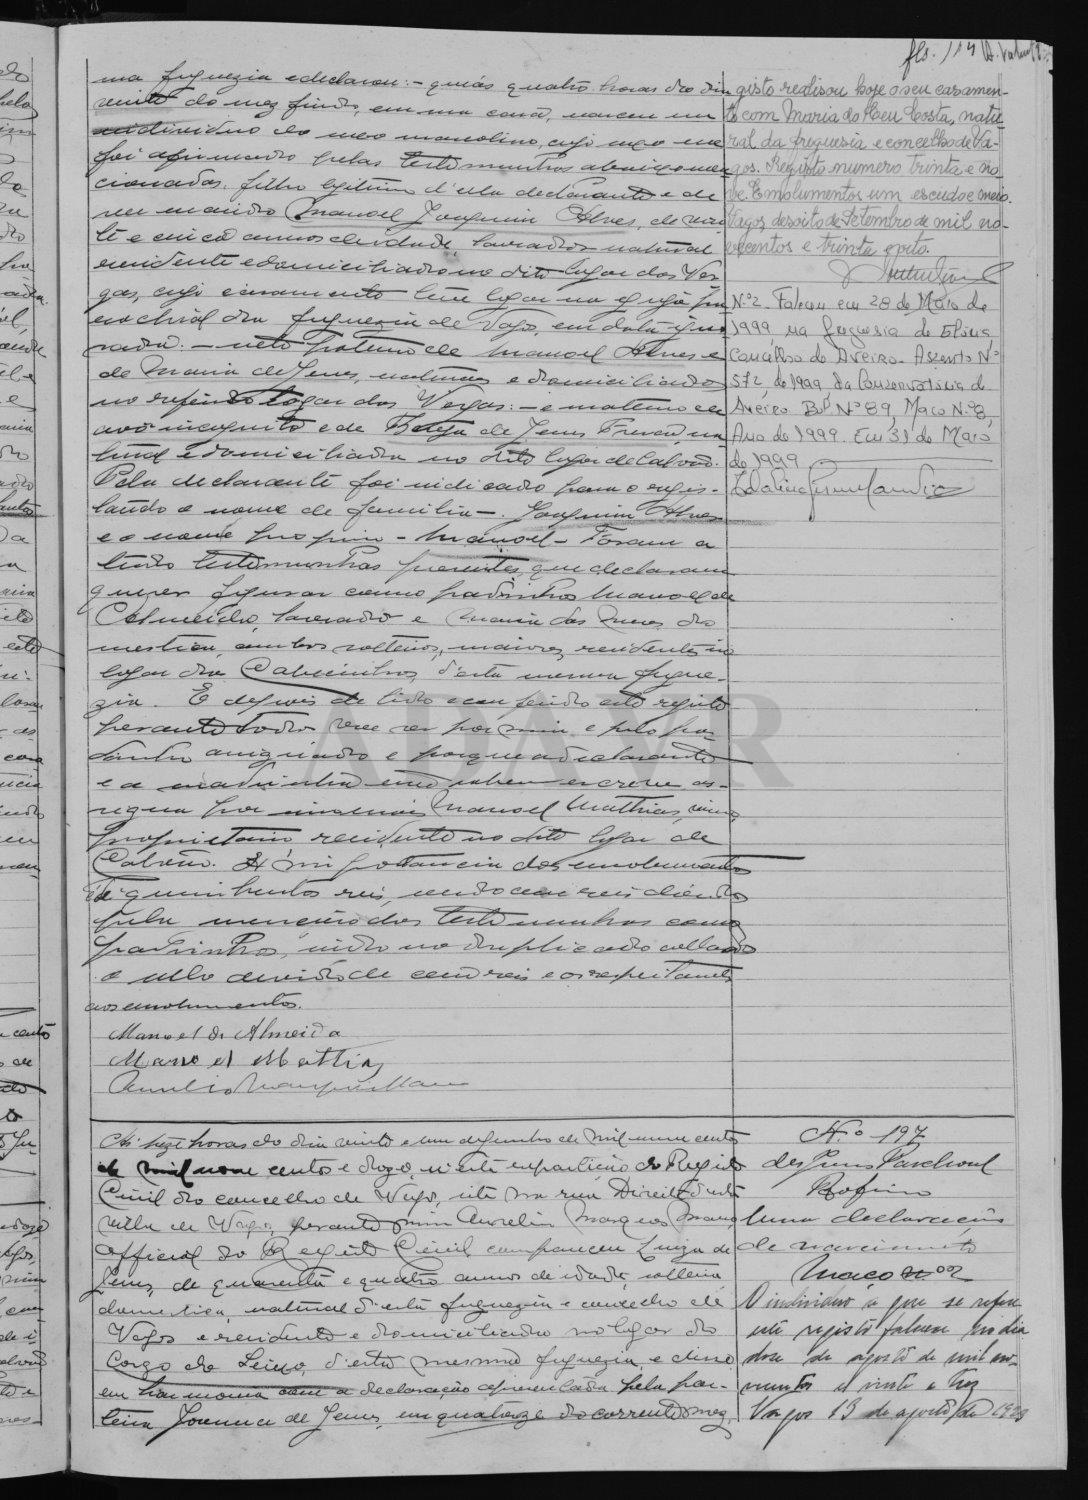 ma freguezia e declarou: - que ás quatro horas do dia
vinte do mez findo, em uma casa, nasceu um
individuo do sexo masculino, cujo sexo me
foi afirmado pelas testemunhas abaixo men-
cionadas, filho legitimo d'ella declarante e de
seu marido Manoel Joaquim Alves, de vin-
te e cinco annos de idade, lavrador natural
residente e domiciliado no dito logar das Ver-
gas, cujo casamento teve logar na egreja pa-
rochial da freguezia de Vagos, em data igno-
rada: - neto paterno de Manoel Alves e
de Maria de Jesus, naturaes e domiciliados
no referido logar das Vergas: - e materno de
avô incognito e de de Jesus na-
tural e domiciliada no dito logar de Calvão.
Pela declarante foi indicado para o regis-
tando o nome de familia - Joaquim Alves
e o nome proprio - Manoel - Foram a
tudo testemunhas presentes, que declararam
querer figurar como padrinhos Manoel de
Almeida, lavrador e Maria das Neves do
mestica, ambos solteiros, maiores, residentes no
logar da d'esta mesma fregue-
zia. E depois de lido e conferido este registo
perante todos vae ser por mim e pelo pa-
drinho assignado e porque a declarante
e a madrinha não sabem escrever as-
signa por Manoel Mathias,
proprietario residente no dito logar de
Calvão. A importancia dos emolumentos
é de quinhentos reis, sendo cem reis
pela menção das testemunhas como
padrinhos, indo no duplicado collado
o sello devido de cem reis e os respeitantes
aos emolumentos.
Manoel de Almeida
Manoel Mathias
Aurelio Marques Mano
gisto realisou hoje o seu casamen-
to com Maria do Ceu Costa, natu-
ral da freguesia e concelho de Va-
gos. Registo numero trinta e no-
ve. Emolumentos um escudo e meio.
Vagos, desoito de Setembro de mil no-
vecentos e trinta e oito.
N.º 2. Faleceu em 28 de Maio de
1999, na freguesia de
Concelho de Aveiro - Assento Nº
572, de 1999, da Conservatoria de
Aveiro. Bol Nº 89, Maço Nº 8,
Ano de 1999. Em 31 de Maio
de 1999
Ás treze horas do dia vinte e um de junho de mil nove centos
de mil nove centos e doze, n'esta repartição do Registo
Civil do concelho de Vagos, sita na rua Direita d'esta
villa de Vagos, perante mim Aurelio Marques Mano
official do Registo Civil compareceu Luiza de
Jesus, de quarenta e quatro annos de idade, solteira
domestica, natural d'esta freguezia e concelho de
Vagos e residente e domiciliada no logar do
Corgo do Seixo, d'esta mesma freguezia, e disse
em harmonia com a declaração apresentada pela par-
teira Joanna de Jesus, em quatorze do corrente mez,
N.º 197
Rofino
uma declaração
de nascimento
Maço n.º 2
O individuo a que se refere
este registo faleceu no dia
doze de agosto de mil no-
vecentos e vinte e tres
Vagos 13 de agosto de 1923